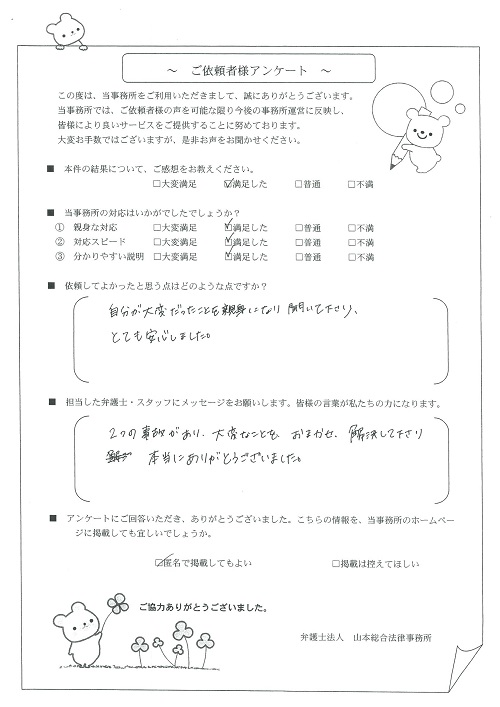 ～ ご依頼者様アンケート ～
この度は、当事務所をご利用いただきまして、誠にありがとうございます。
当事務所では、ご依頼者様の声を可能な限り今後の事務所運営に反映し、
皆様により良いサービスをご提供することに努めております。
大変お手数ではございますが、是非お声をお聞かせください。
■ 本件の結果について、ご感想をお教えください。
□大変満足 ☑満足した □普通 □不満
■ 当事務所の対応はいかがでしたでしょうか？
① 親身な対応 □大変満足 ☑満足した □普通 □不満
② 対応スピード □大変満足 ☑満足した □普通 □不満
③ 分かりやすい説明 □大変満足 ☑満足した □普通 □不満
■ 依頼してよかったと思う点はどのような点ですか？
自分が大変だったことを親身になり聞いて下さり、
とても安心しました。
■ 担当した弁護士・スタッフにメッセージをお願いします。皆様の言葉が私たちの力になります。
2つの事故があり、大変なことを、おまかせ、解決して下さり
本当にありがとうございました。
■ アンケートにご回答いただき、ありがとうございました。こちらの情報を、当事務所のホームペー
ジに掲載しても宜しいでしょうか。
☑匿名で掲載してもよい □掲載は控えてほしい
ご協力ありがとうございました。
弁護士法人 山本総合法律事務所